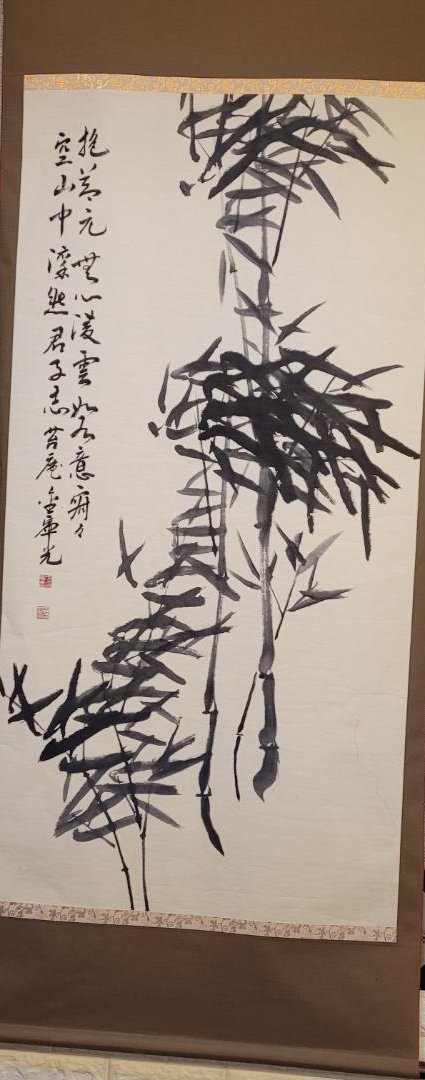 抱節元無心凌雲如有意寂々
空山中凜然君子志 苔庵金光